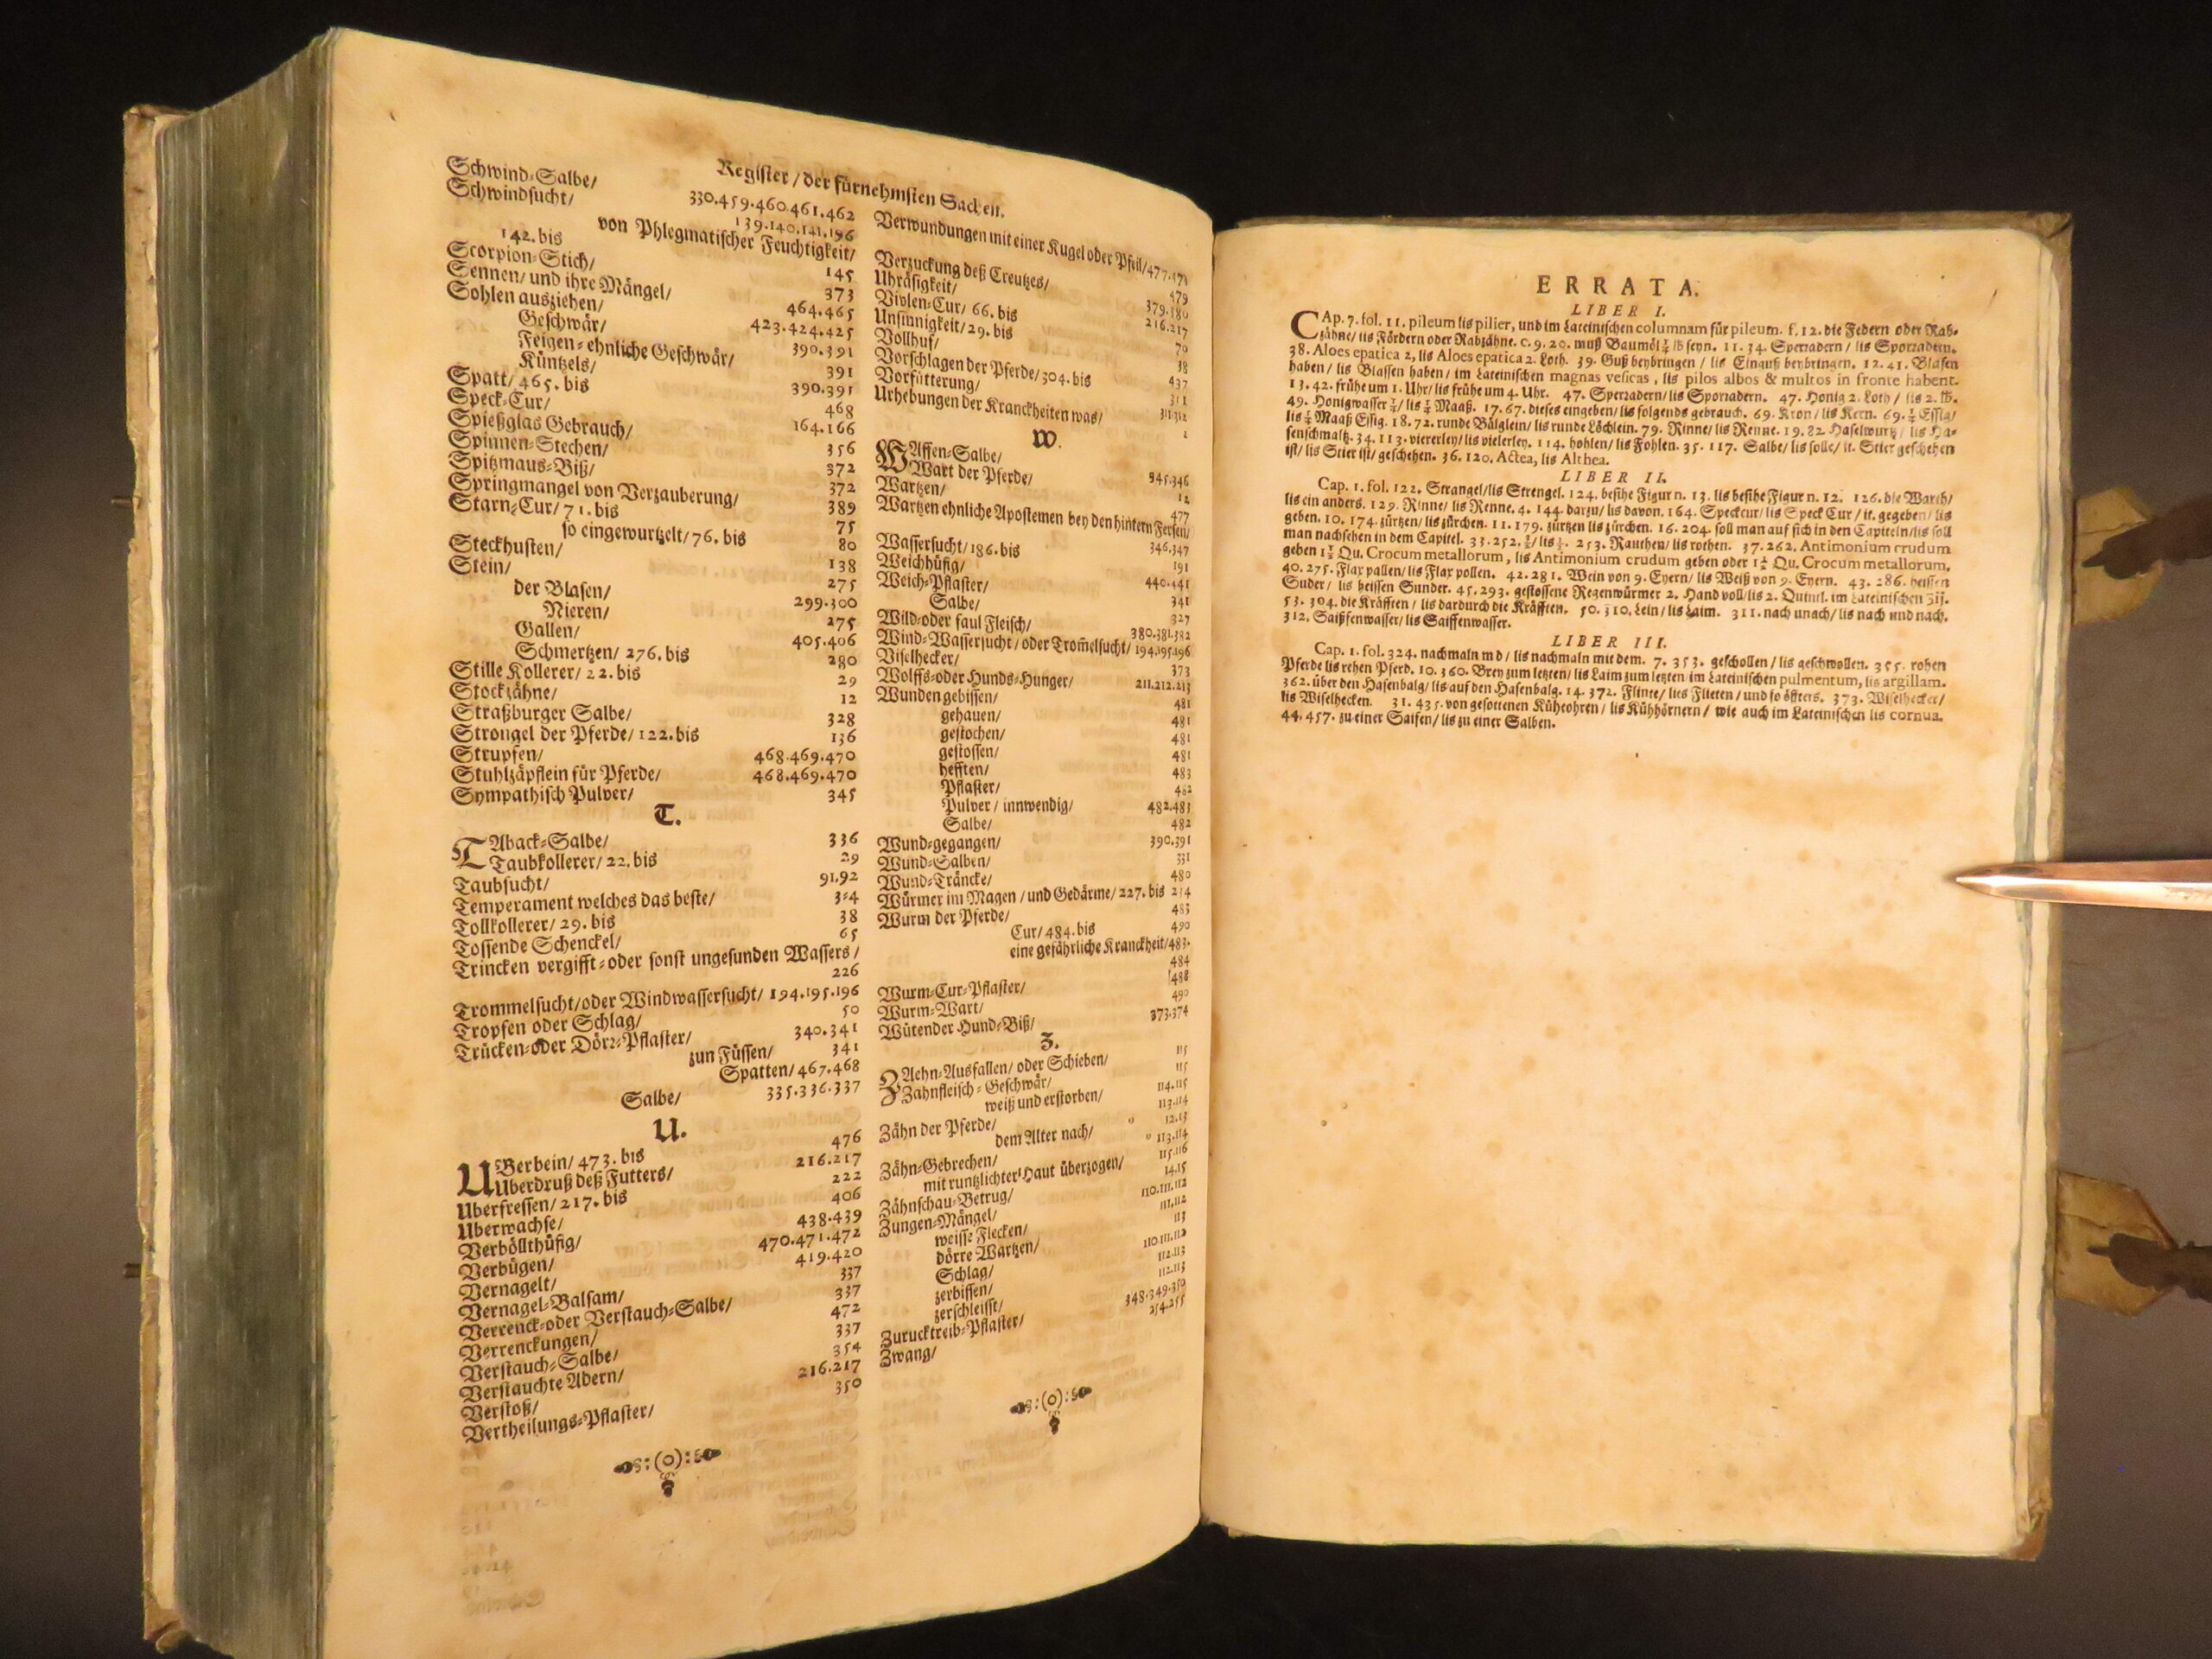 Register / der fürnehmsten Sachen.
Schwind-Salbe/ 330.459.460.461.462
Schwindsucht/ 139.140.141.196
von Phlegmatischer Feuchtigkeit/
142. bis 145
Scorpion-Stich/ 373
Sennen/ und ihre Mängel/ 464.465
Sohlen ausziehen/ 423.424.425
Geschwär/ 390.391
Feigen-ehnliche Geschwär/ 391
Küntzels/ 390.391
Spatt/ 465. bis 468
Speck-Cur/ 164.166
Spießglas Gebrauch/ 356
Spinnen-Stechen/ 372
Spitzmaus-Biß/ 372
Springmangel von Verzauberung/ 389
Starn-Cur/ 71. bis 75
so eingewurtzelt/ 76. bis 80
Steckhusten/ 138
Stein/ 275
der Blasen/ 299.300
Nieren/ 275
Gallen/ 405.406
Schmertzen/ 276. bis 280
Stille Kollerer/ 22. bis 29
Stockzähne/ 12
Straßburger Salbe/ 328
Strongel der Pferde/ 122. bis 136
Strupfen/ 468.469.470
Stuhlzäpflein für Pferde/ 468.469.470
Sympathisch Pulver/ 345
T.
TAback-Salbe/ 336
Taubkollerer/ 22. bis 29
Taubsucht/ 91.92
Temperament welches das beste/ 3=4
Tollkollerer/ 29. bis 38
Tossende Schenckel/ 65
Trincken vergifft-oder sonst ungesunden Wassers/
226
Trommelsucht/oder Windwassersucht/ 194.195.196
Tropfen oder Schlag/ 50
Trücken-oder Dörr-Pflaster/ 340.341
zun Füssen/ 341
Spatten/ 467.468
Salbe/ 335.336.337
U.
UBerbein/ 473. bis 476
Uberdruß deß Futters/ 216.217
Uberfressen/ 217. bis 222
Uberwachse/ 406
Verböllthüfig/ 438.439
Verbügen/ 470.471.472
Vernagelt/ 419.420
Vernagel-Balsam/ 337
Verrenck-oder Verstauch-Salbe/ 337
Verrenckungen/ 472
Verstauch-Salbe/ 337
Verstauchte Adern/ 354
Verstoß/ 216.217
Vertheilungs-Pflaster/ 350
:(o):
Verwundungen mit einer Kugel oder Pfeil/ 477.478
Verzuckung deß Creutzes/ 479
Uhräsigkeit/ 379.380
Vivlen-Cur/ 66. bis
Unsinnigkeit/ 29. bis
Vollhuf/
Vorschlagen der Pferde/ 304. bis
Vorfütterung/
Urhebungen der Kranckheiten was/
W.
WAffen-Salbe/ 345.346
Wart der Pferde/ 12
Wartzen/ 477
Wartzen ehnliche Apostemen bey den hintern Fersen/
346.347
Wassersucht/ 186. bis 191
Weichhüfig/ 440.441
Weich-Pflaster/ 341
Salbe/ 327
Wild-oder faul Fleisch/ 380.381.382
Wind-Wassersucht/ oder Trom̃elsucht/ 194.195.196
Wiselhecker/ 373
Wolffs-oder Hunds-Hunger/ 211.212.213
Wunden gebissen/ 481
gehauen/ 481
gestochen/ 481
gestossen/ 481
hefften/ 483
Pflaster/ 482
Pulver/ innwendig/ 482.483
Salbe/ 482
Wund-gegangen/ 390.391
Wund-Salben/ 331
Wund-Träncke/ 480
Würmer im Magen / und Gedärme/ 227. bis 234
Wurm der Pferde/ 483
Cur/ 484. bis 490
eine gefährliche Kranckheit/ 483.
484
Wurm-Cur-Pflaster/ 488
Wurm-Wart/ 490
Wütender Hund-Biß/ 373.374
Z.
ZAehn-Ausfallen/ oder Schieben/ 115
Zahnfleisch-Geschwär/ 115
weiß und erstorben/ 114.115
Zähn der Pferde/ 113.114
dem Alter nach/ 12.13
Zähn-Gebrechen/ 113.114
mit runtzlichter Haut überzogen/ 115.116
Zähnschau-Betrug/ 14.15
Zungen-Mängel/ 110.111.112
weisse Flecken/ 111.112
dörre Wartzen/ 113
Schlag/ 110.111.112
zerbissen/ 112.113
zerschleisst/ 112.113
Zurucktreib-Pflaster/ 348.349.350
Zwang/ 254.255
:(o):
ERRATA.
LIBER I.
CAp. 7. fol. 11. pileum lis pilier, und im Lateinischen columnam für pileum. f. 12. die Federn oder Rab-
zähne/ lis Fördern oder Rabzähne. c. 9. 20. muß Baumöl ¼ lb seyn. 11. 34. Sperradern / lis Sporradern.
38. Aloes epatica 2, lis Aloes epatica 2. Loth. 39. Guß beybringen / lis Einguß beybringen. 12. 41. Blasen
haben / lis Blassen haben / im Lateinischen magnas vesicas, lis pilos albos & multos in fronte habent.
13. 42. frühe um 1. Uhr/ lis frühe um 4. Uhr. 47. Sperradern/ lis Sporradern. 47. Honig 2. Loth / lis 2. lb.
49. Honigwasser ¼/ lis ¼ Maaß. 17. 67. dieses eingeben/ lis folgends gebrauch. 69. Kron / lis Kern. 69. ½ Essig/
lis ½ Maaß Essig. 18. 72. runde Bälglein/ lis runde Löchlein. 79. Rinne/ lis Renne. 19. 82. Haselwurtz / lis Ha-
senschmaltz. 34. 113. viererley/ lis vielerley. 114. hohlen/ lis Fohlen. 35. 117. Salbe/ lis solle/ it. Stier geschehen
ist/ lis Stier ist/ geschehen. 36. 120. Actea, lis Althea.
LIBER II.
Cap. 1. fol. 122. Strangel/ lis Strengel. 124. besihe Figur n. 13. lis besihe Figur n. 12. 126. die Warth/
lis ein anders. 129. Rinne/ lis Renne. 4. 144. darzu/ lis davon. 164. Speckeur/ lis Speck Cur / it. gegeben/ lis
geben. 10. 174. zürtzen/ lis zürchen. 11. 179. zürtzen lis zürchen. 16. 204. soll man auf sich in den Capiteln/ lis soll
man nachsehen in dem Capitel. 33. 252. 253. Rauthen/ lis rothen. 37. 262. Antimonium crudum
geben 1½ Qu. Crocum metallorum, lis Antimonium crudum geben oder 1½ Qu. Crocum metallorum.
40. 275. Flax pallen/ lis Flax pollen. 42. 281. Wein von 9. Eyern/ lis Weiß von 9. Eyern. 43. 286. heissen
Suder/ lis heissen Sunder. 45. 293. gestossene Regenwürmer 2. Hand voll/ lis 2. Quintl. im Lateinischen ʒij.
53. 304. die Kräfften / lis dardurch die Kräfften. 50. 310. Lein/ lis Laim. 311. nach unach/ lis nach und nach.
312. Saißfenwasser/ lis Saiffenwasser.
LIBER III.
Cap. 1. fol. 324. nachmaln md / lis nachmaln mit dem. 7. 353. geschollen / lis geschwollen. 355. rohen
Pferde lis rehen Pferd. 10. 360. Brey zum letzten/ lis Laim zum letzten im Lateinischen pulmentum, lis argillam.
362. über den Hasenbalg/ lis auf den Hasenbalg. 14. 372. Flinte/ lies Flieten / und so öffters. 373. Wiselhecker/
lis Wiselhecken. 31. 435. von gesottenen Küheohren / lis Kühhörnern / wie auch im Lateinischen lis cornua.
44. 457. zu einer Saifen/ lis zu einer Salben.